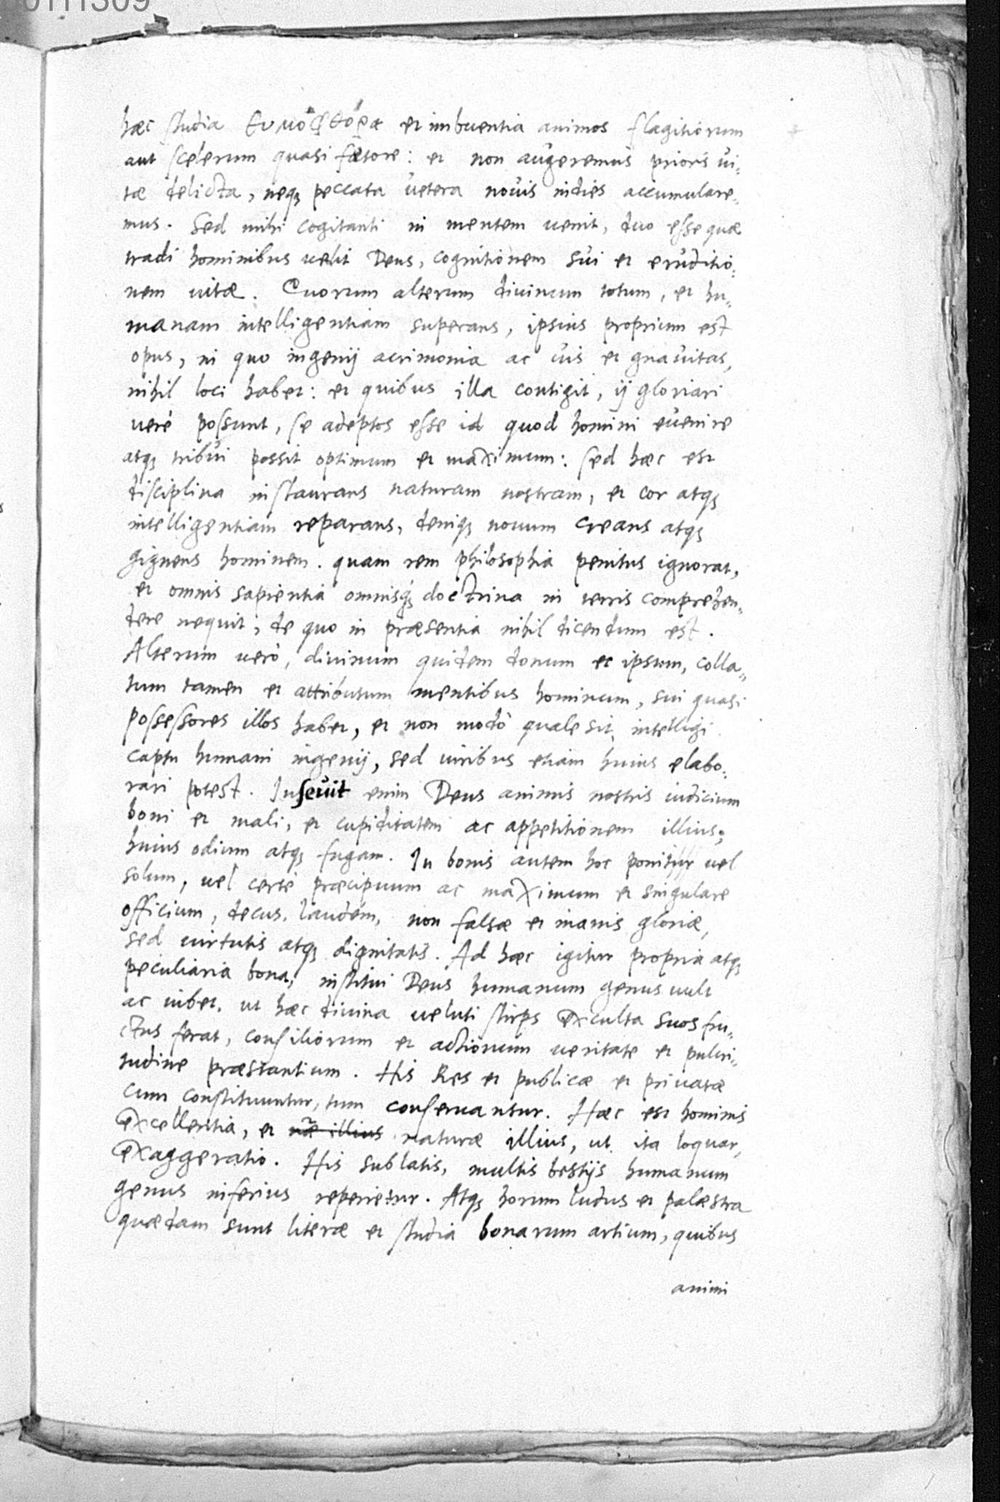 hæc studia et imbuentia animos flagitiorum
aut scelerum quasi fœtore: et non augeremus prioris vi,
tæ delicta, neq; peccata vetera novis indies accumulare,
mus. Sed mihi cogitanti in mentem venit, duo esse quæ
tradi hominibus velit Deus, cognitionem sui et eruditio,
nem vitæ. Quorum alterum divinum totum, et hu,
manam intelligentiam superans, ipsius proprium est
opus, in quo ingenij acrimonia ac vis et gnavitas,
nihil loci habet: et quibus illa contigit, ij gloriari
verè possunt, se adeptos esse id quod homini evenire
atq; tribui possit optimum et maximum: sed hæc est
disciplina instaurans naturam nostram, et cor atq;
intelligentiam reparans, deniq; novum creans atq;
gignens hominem. quam rem philosophia penitus ignorat,
et omnis sapientia omnisq; doctrina in terris comprehen,
dere nequit; de quo in præsentia nihil dicendum est.
Alterum verò, divinum quidem donum et ipsum, colla,
tum tamen et attributum mentibus hominum, sui quasi
possessores illos habet, et non modò quale sit, intelligi
captu humani ingenij, sed viribus etiam huius elabo,
rari potest. Insevit enim Deus animis nostris iudicium
boni et mali, et cupiditatem ac appetitionem illius,
huius odium atq; fugam. In bonis autem hoc ponitur vel
solum, vel certè præcipuum ac maximum et singulare
officium, decus, laudem, non falsæ et inanis gloriæ,
sed virtutis atq; dignitatis. Ad hæc igitur propria atq;
peculiaria bona, institui Deus humanum genus vult
ac iubet, ut hæc divina veluti stirps exculta suos fru,
ctus ferat, consiliorum et actionum veritate et pulcri,
tudine præstantium. His Res et publicæ et privatæ
cum constituuntur, tum conservantur. Hæc est hominis
excellentia, et naturæ illius, ut ita loquar,
exaggeratio. His sublatis, multis bestijs humanum
genus inferius reperietur. Atq; horum ludus et palæstra
quædam sunt literæ et studia bonarum artium, quibus
animi